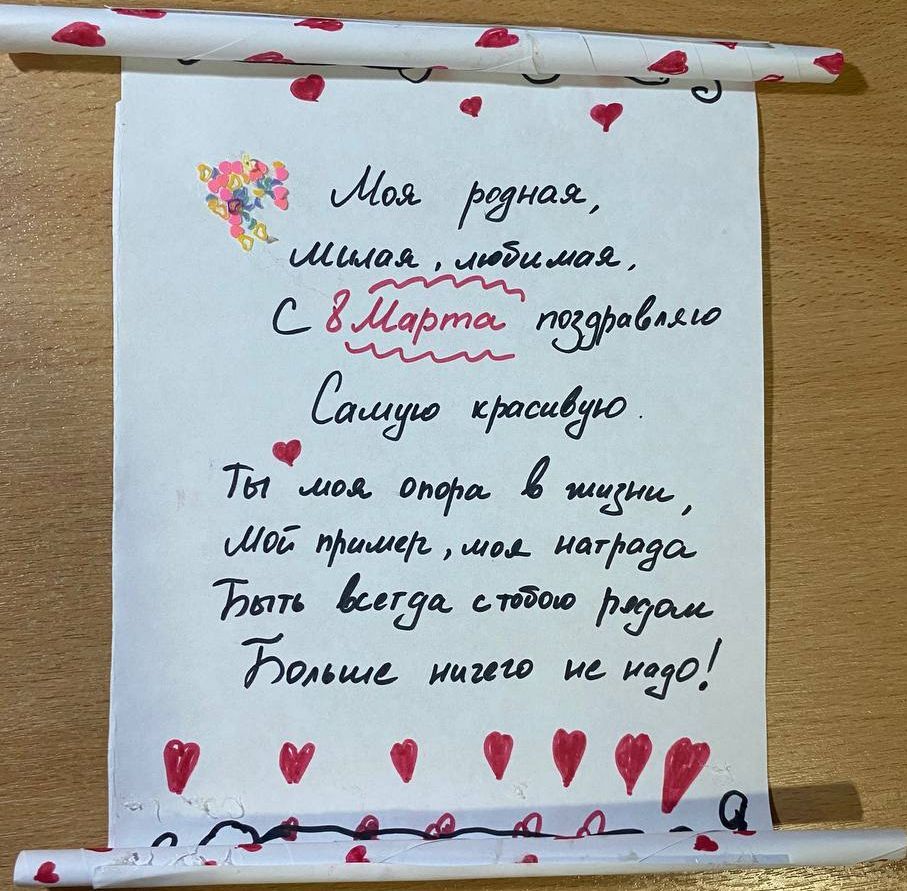 Моя родная,
милая, любимая,
С 8 Марта поздравляю
Самую красивую.
Ты моя опора в жизни,
Мой пример, моя награда
Быть всегда с тобою рядом
Больше ничего не надо!